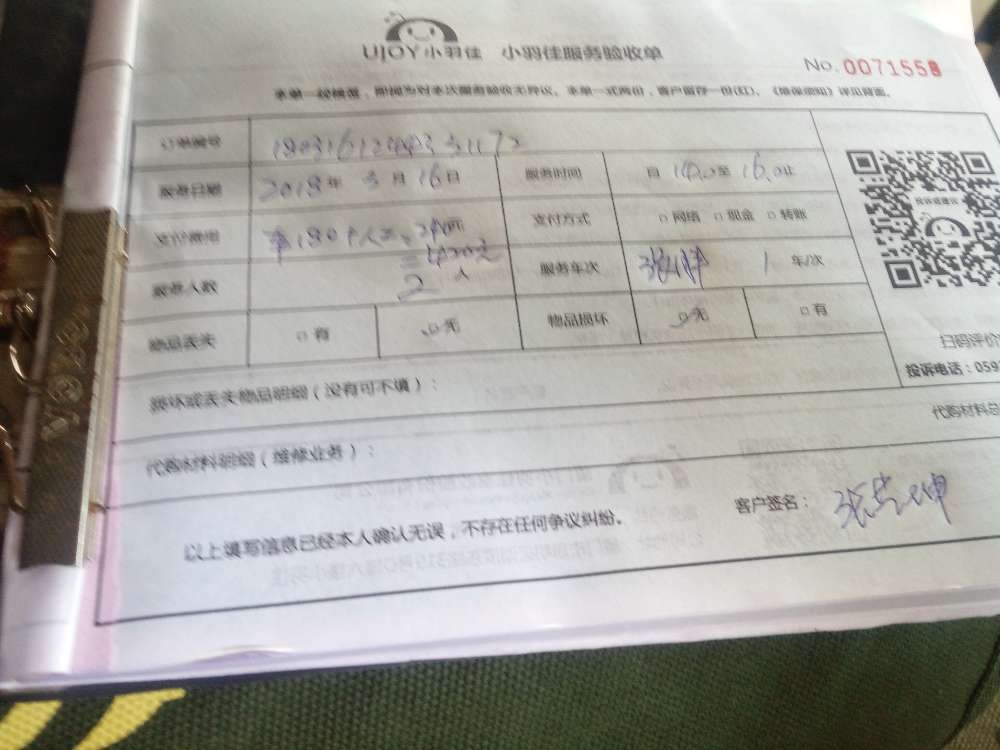 UJOY小羽佳 小羽佳服务验收单
No.0071558
本单一经核签，即视为对本次服务验收无异议。本单一式两份，客户留存一份(红)。《维保须知》详见背面。
订单编号
服务日期 2018年3月16日 服务时间 自14.0至16.0止
支付费用 车180+人工:240元 支付方式 □网络 □现金 □转账
=420元
服务人数 2人 服务年次 1年/次
物品丢失 □有 □无 物品损坏 □无 □有
投诉或建议
扫码评价
投诉电话：059
损坏或丢失物品明细（没有可不填）：
代购材料明细（维修业务）： 代购材料总
以上填写信息已经本人确认无误，不存在任何争议纠纷。 客户签名：